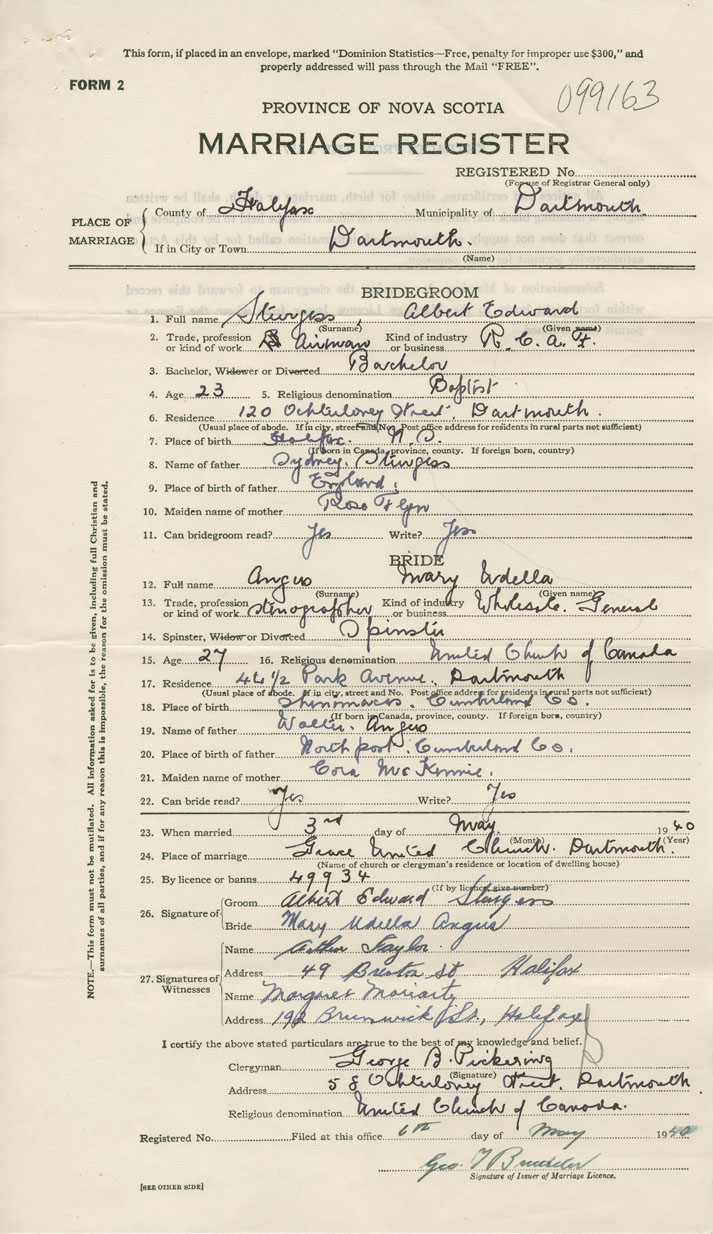 This form, if placed in an envelope, marked "Dominion Statistics—Free, penalty for improper use $300," and
properly addressed will pass through the Mail "FREE".
FORM 2
099163
PROVINCE OF NOVA SCOTIA
MARRIAGE REGISTER
REGISTERED No.
(For use of Registrar General only)
PLACE OF MARRIAGE
County of Halifax Municipality of Dartmouth.
If in City or Town Dartmouth.
(Name)
BRIDEGROOM
1. Full name Sturgess, Albert Edward
(Surname) (Given name)
2. Trade, profession or kind of work Airman Kind of industry or business R.C.A.F.
3. Bachelor, Widower or Divorced Bachelor
4. Age 23 5. Religious denomination Baptist
6. Residence 120 Ochterloney Street, Dartmouth.
(Usual place of abode. If in city, street and No. Post office address for residents in rural parts not sufficient)
7. Place of birth Halifax. N.S.
(If born in Canada, province, county. If foreign born, country)
8. Name of father Sydney Sturgess
9. Place of birth of father England.
10. Maiden name of mother Rose Flyn
11. Can bridegroom read? Yes Write? Yes
BRIDE
12. Full name Angus Mary Udella
(Surname) (Given name)
13. Trade, profession or kind of work stenographer Kind of industry or business Wholesale. General
14. Spinster, Widow or Divorced Spinster
15. Age 27 16. Religious denomination United Church of Canada
17. Residence 46 1/2 Park Avenue. Dartmouth
(Usual place of abode. If in city, street and No. Post office address for residents in rural parts not sufficient)
18. Place of birth Cumberland Co.
(If born in Canada, province, county. If foreign born, country)
19. Name of father Walter. Angus
20. Place of birth of father Northport. Cumberland Co.
21. Maiden name of mother Cora McKennie.
22. Can bride read? Yes Write? Yes
23. When married 3rd day of May 1940
(Month) (Year)
24. Place of marriage Grace United Church. Dartmouth.
(Name of church or clergyman's residence or location of dwelling house)
25. By licence or banns 49934
(If by licence give number)
26. Signature of
Groom Albert Edward Sturgess
Bride Mary Udella Angus
27. Signatures of Witnesses
Name Arthur Taylor.
Address 49 Breton St Halifax
Name Margaret Moriarty
Address 192 Brunswick St., Halifax
I certify the above stated particulars are true to the best of my knowledge and belief.
Clergyman George B. Pickering
(Signature)
Address 58 Ochterloney Street, Dartmouth
Religious denomination United Church of Canada.
Registered No. Filed at this office 6th day of May 1940
Geo.
Signature of Issuer of Marriage Licence.
[SEE OTHER SIDE]
NOTE.—This form must not be mutilated. All information asked for is to be given, including full Christian and
surnames of all parties, and if for any reason this is impossible, the reason for the omission must be stated.